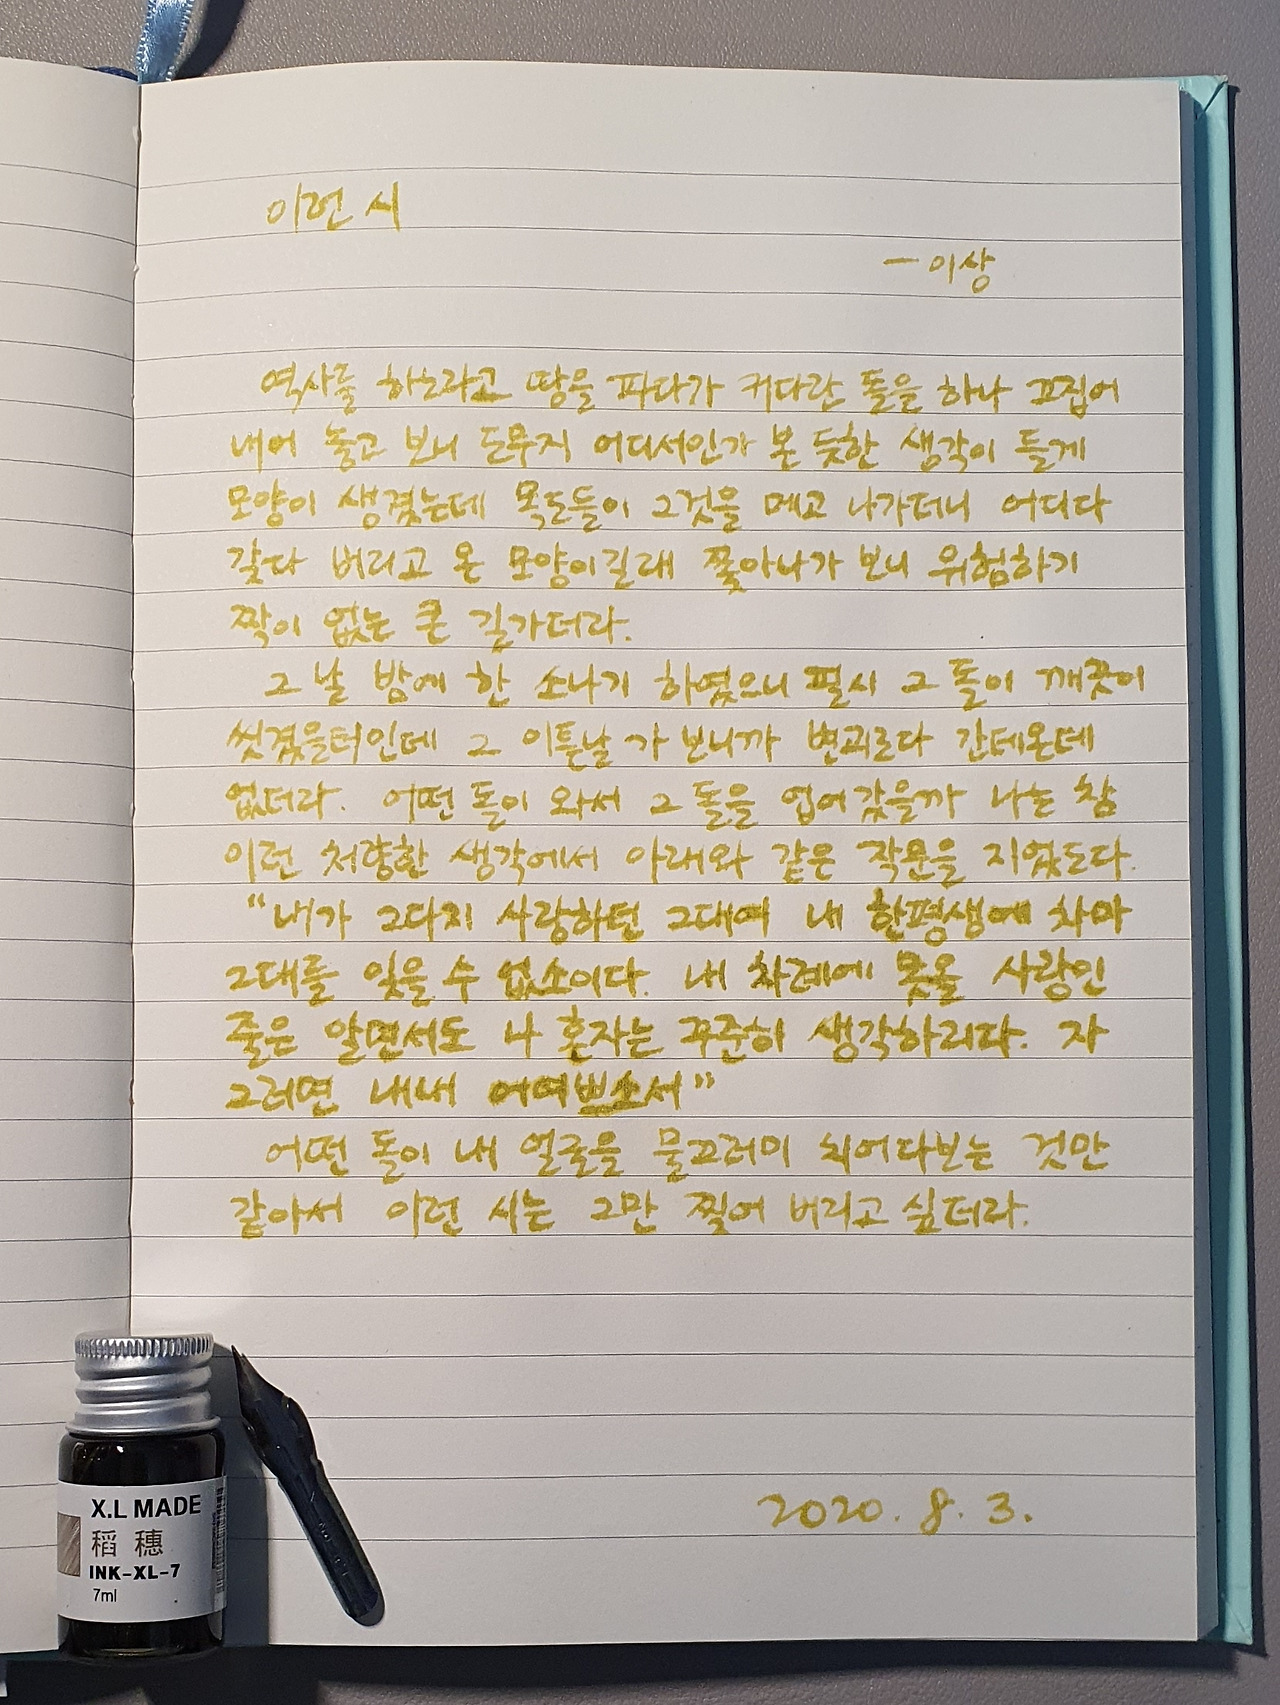 이런 시
- 이상
역사를 하노라고 땅을 파다가 커다란 돌을 하나 끄집어
내어 놓고 보니 도무지 어디서인가 본 듯한 생각이 들게
모양이 생겼는데 목도들이 그것을 메고 나가더니 어디다
갖다 버리고 온 모양이길래 쫓아나가 보니 위험하기
짝이 없는 큰 길가더라.
그날 밤에 한 소나기 하였으니 필시 그 돌이 깨끗이
씻겼을터인데 그 이튿날 가 보니까 변괴로다 간데온데
없더라. 어떤 돌이 와서 그 돌을 업어갔을까 나는 참
이런 처량한 생각에서 아래와 같은 작문을 지었도다.
"내가 그다지 사랑하던 그대여 내 한평생에 차마
그대를 잊을 수 없소이다. 내 차례에 못올 사랑인
줄은 알면서도 나 혼자는 꾸준히 생각하리다. 자
그러면 내내 어여쁘소서"
어떤 돌이 내 얼굴을 물끄러미 치어다보는 것만
같아서 이런 시는 그만 찢어 버리고 싶더라.
2020. 8. 3.
X.L MADE
稻穗
INK-XL-7
7ml